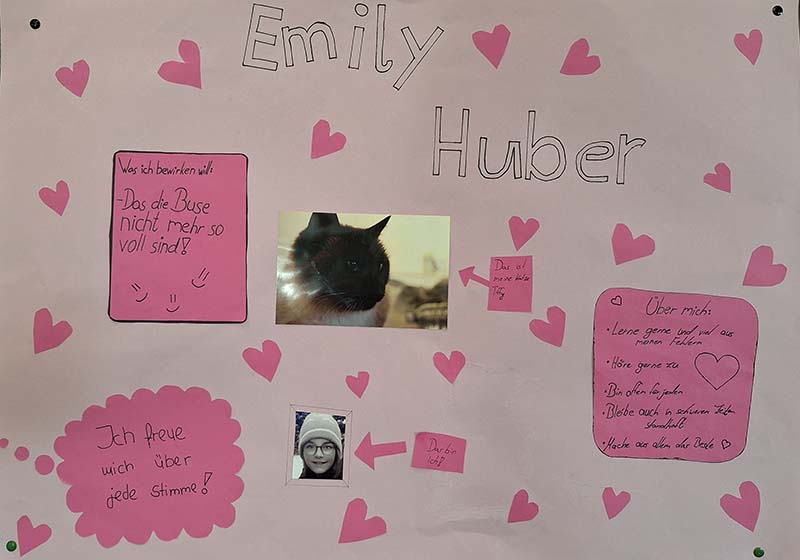 Emily
Huber
Was ich bewirken will:
-Das die Buse
nicht mehr so
voll sind!
Das ist
meine Katze
Tiffy
Über mich:
• Lerne gerne und viel aus
meinen Fehlern
• Höre gerne zu
• Bin offen für jeden
• Bleibe auch in schweren Zeiten
standhaft
• Mache aus allem das Beste
Ich freue
mich über
jede Stimme!
Das bin
Ich!